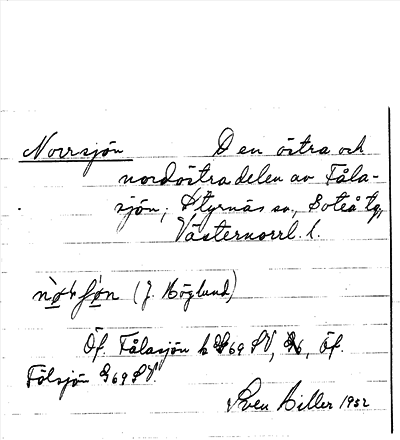 Norrsjön Den östra och
nordöstra delen av Fåla-
sjön; Styrnäs sn, Boteå tg,
Västernorrl. l.
(J. Höglund)
Öf. Fålasjön k 69 SV, öf.
Fölsjön G69 SV.
Sven Hiller 1952